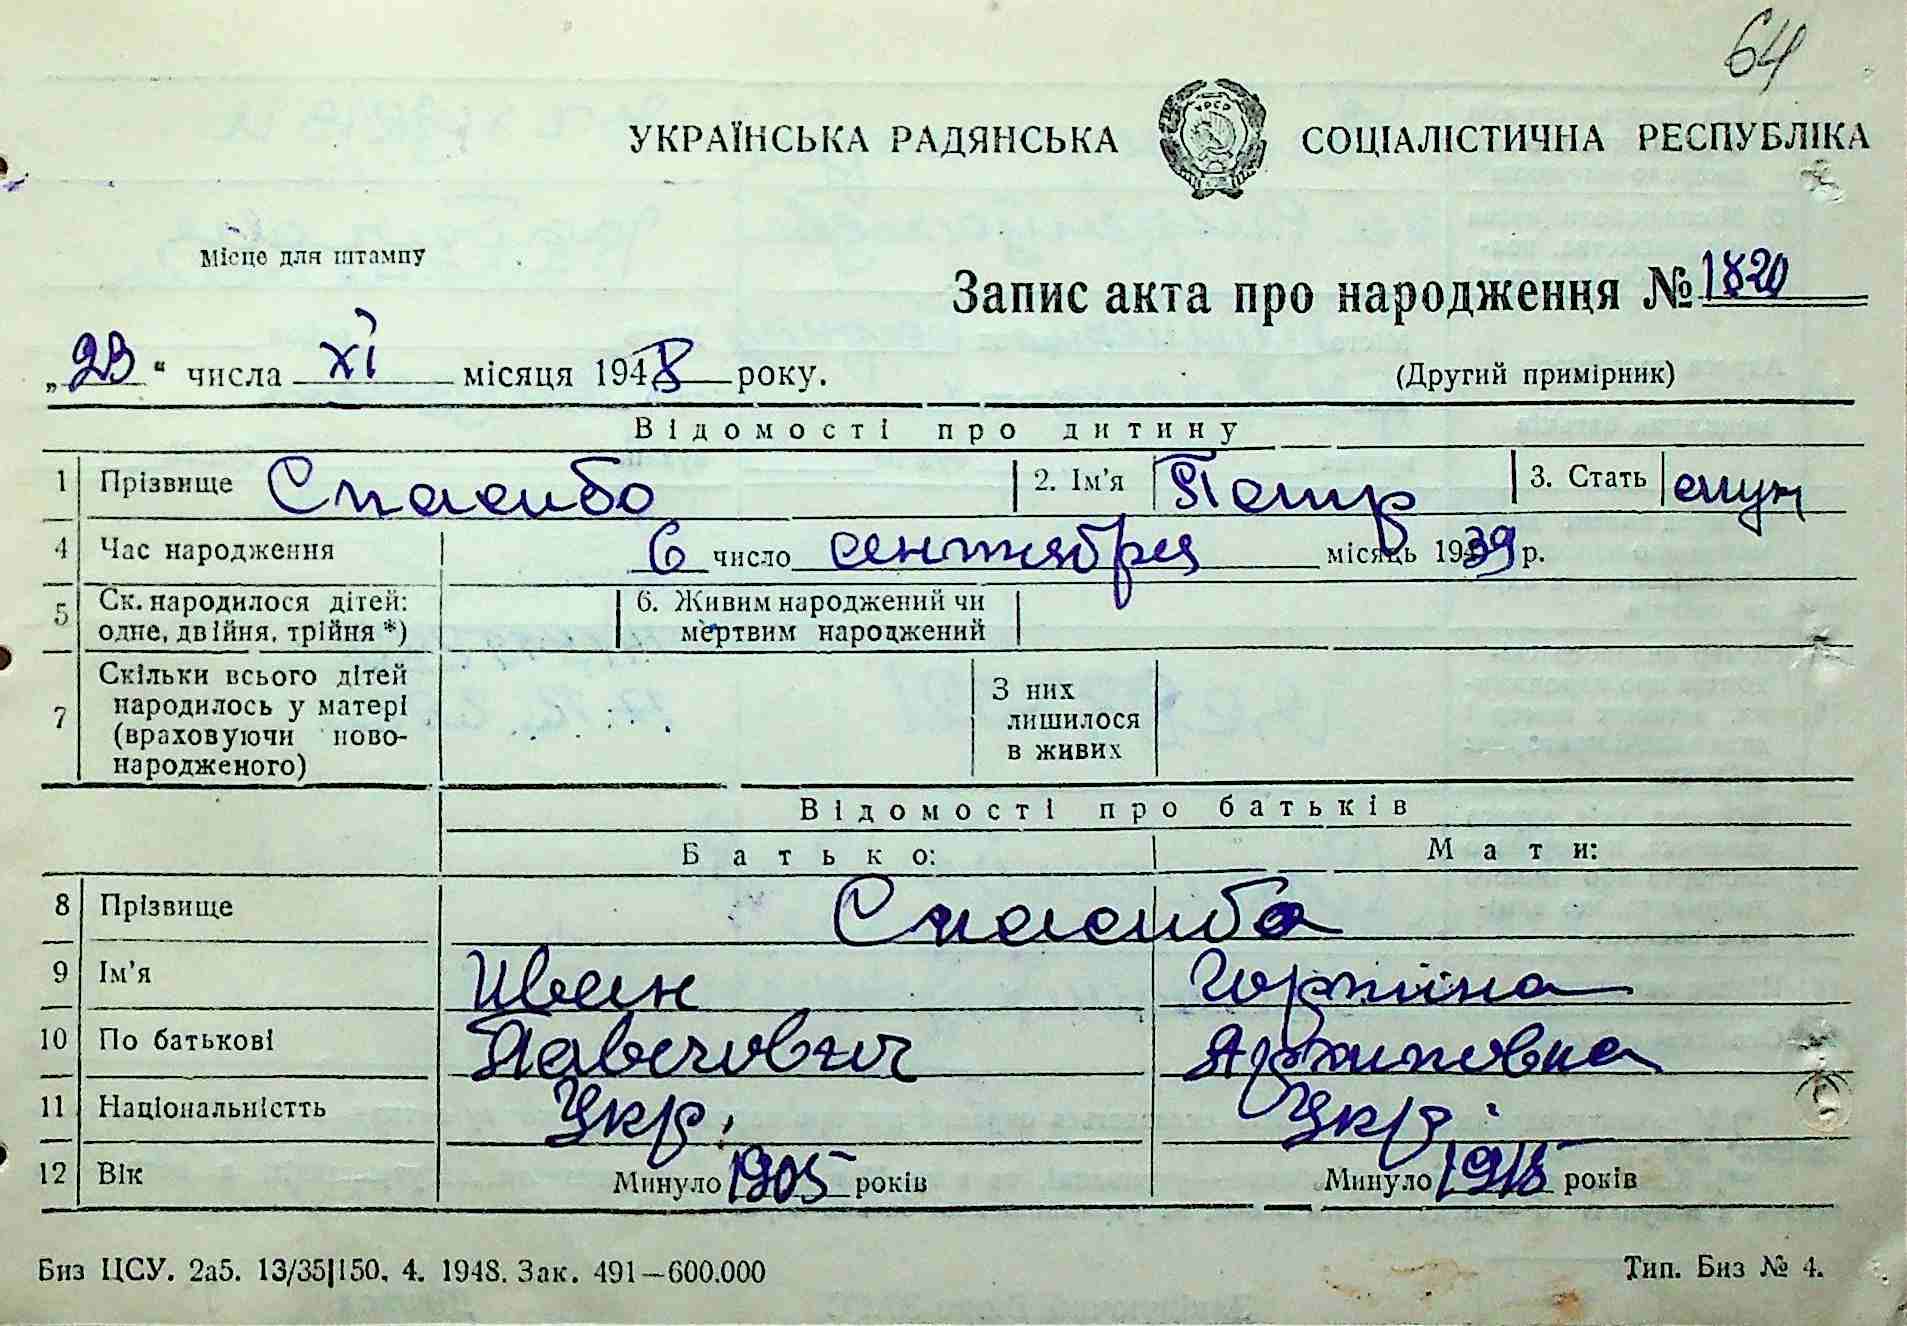 64
УКРАЇНСЬКА РАДЯНСЬКА СОЦІАЛІСТИЧНА РЕСПУБЛІКА
УРСР
Місце для штампу
Запис акта про народження № 1820
„23“ числа XI місяця 1948 року.
(Другий примірник)
Відомості про дитину
1 Прізвище Спасибо 2. Ім'я Петр 3. Стать муж
4 Час народження 6 число сентября місяць 1939 р.
5 Ск. народилося дітей: одне, двійня, трійня *) 6. Живим народжений чи мертвим народжений
7 Скільки всього дітей народилось у матері (враховуючи ново-народженого) З них лишилося в живих
Відомості про батьків
Батько: Мати:
8 Прізвище Спасибо
9 Ім'я Иван Горпина
10 По батькові Павлович Архиповна
11 Національністть Укр. Укр.
12 Вік Минуло 1905 років Минуло 1915 років
Биз ЦСУ. 2а5. 13/35|150. 4. 1948. Зак. 491—600.000
Тип. Биз № 4.